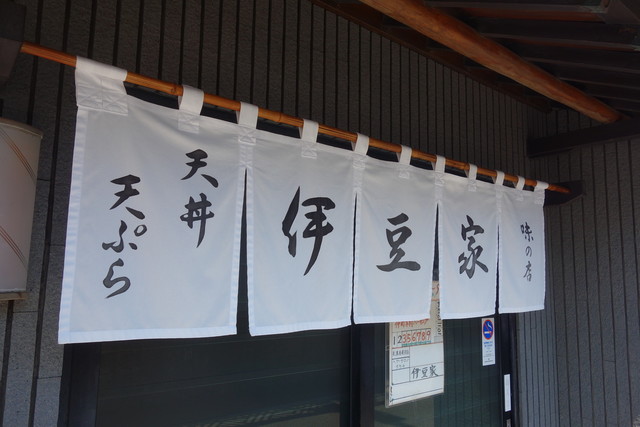 天丼
天ぷら
伊豆家
味の店
12356789
伊豆家